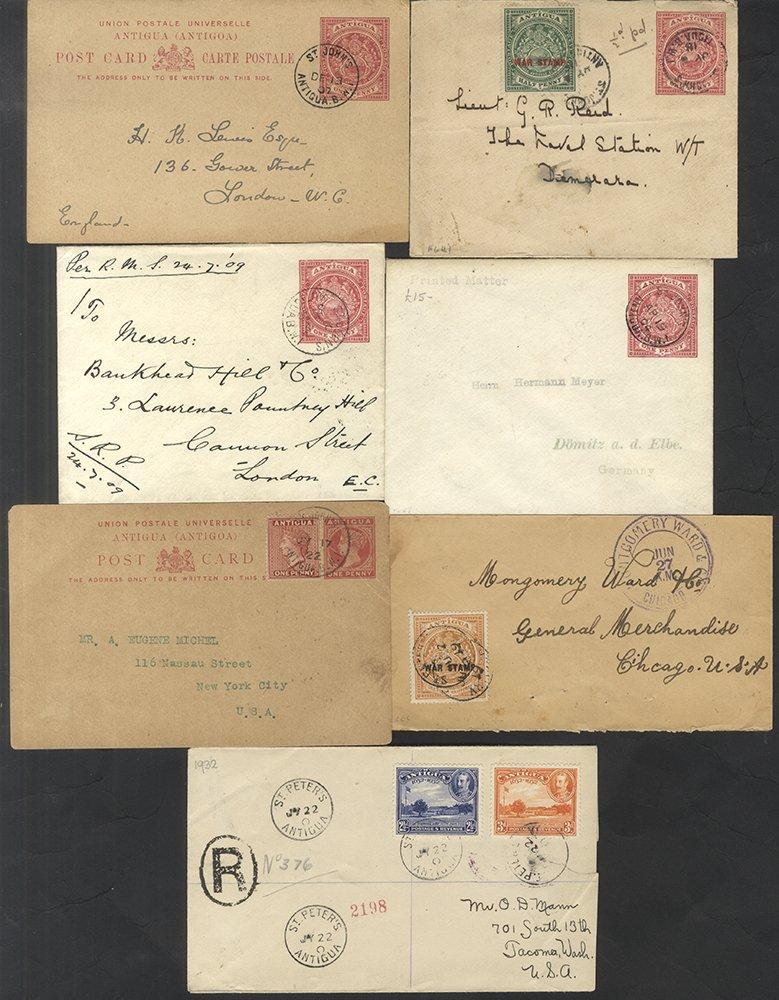 UNION POSTALE UNIVERSELLE
ANTIGUA (ANTIGOA)
POST CARD CARTE POSTALE
THE ADDRESS ONLY TO BE WRITTEN ON THIS SIDE.
ST JOHN'S
DE 13
07
ANTIGUA.B.W.I.
H. K. Lewis Esqre
136. Gower Street,
London - W. C.
England-
ANTIGUA
WAR STAMP
HALF PENNY
Lieut: G. R. Reid.
The Naval Station W/T
Demerara.
Per R. M. S. 24.7.'09
ANTIGUA
ONE PENNY
To
Messrs:
Bankhead Hill & Co.
3. Laurence Pountney Hill
Cannon Street
London E.C.
24.7.09
Printed Matter
£15-
ANTIGUA
ONE PENNY
Herrn Hermann Meyer
Dömitz a. d. Elbe.
Germany
UNION POSTALE UNIVERSELLE
ANTIGUA (ANTIGOA)
POST CARD
THE ADDRESS ONLY TO BE WRITTEN ON THIS S
ANTIGUA
ONE PENNY
ANTIGUA
ONE PENNY
17
22
MR. A. EUGENE MICHEL
116 Nassau Street
New York City
U.S.A.
MONTGOMERY WARD & CO
JUN
27
CHICAGO
Mongomery Ward & Co.
General Merchandise
Chicago. U.S.A
ANTIGUA
WAR STAMP
1932
ST. PETER'S
JY 22
ANTIGUA
ANTIGUA
1632-1932
2½d
POSTAGE & REVENUE
ANTIGUA
1632-1932
3d
ST. PETER'S
JY 22
ANTIGUA
R
No 376
2198
ST. PETER'S
JY 22
ANTIGUA
Mr. O. D. Mann
701 South 13th
Tacoma, Wash.
U.S.A.